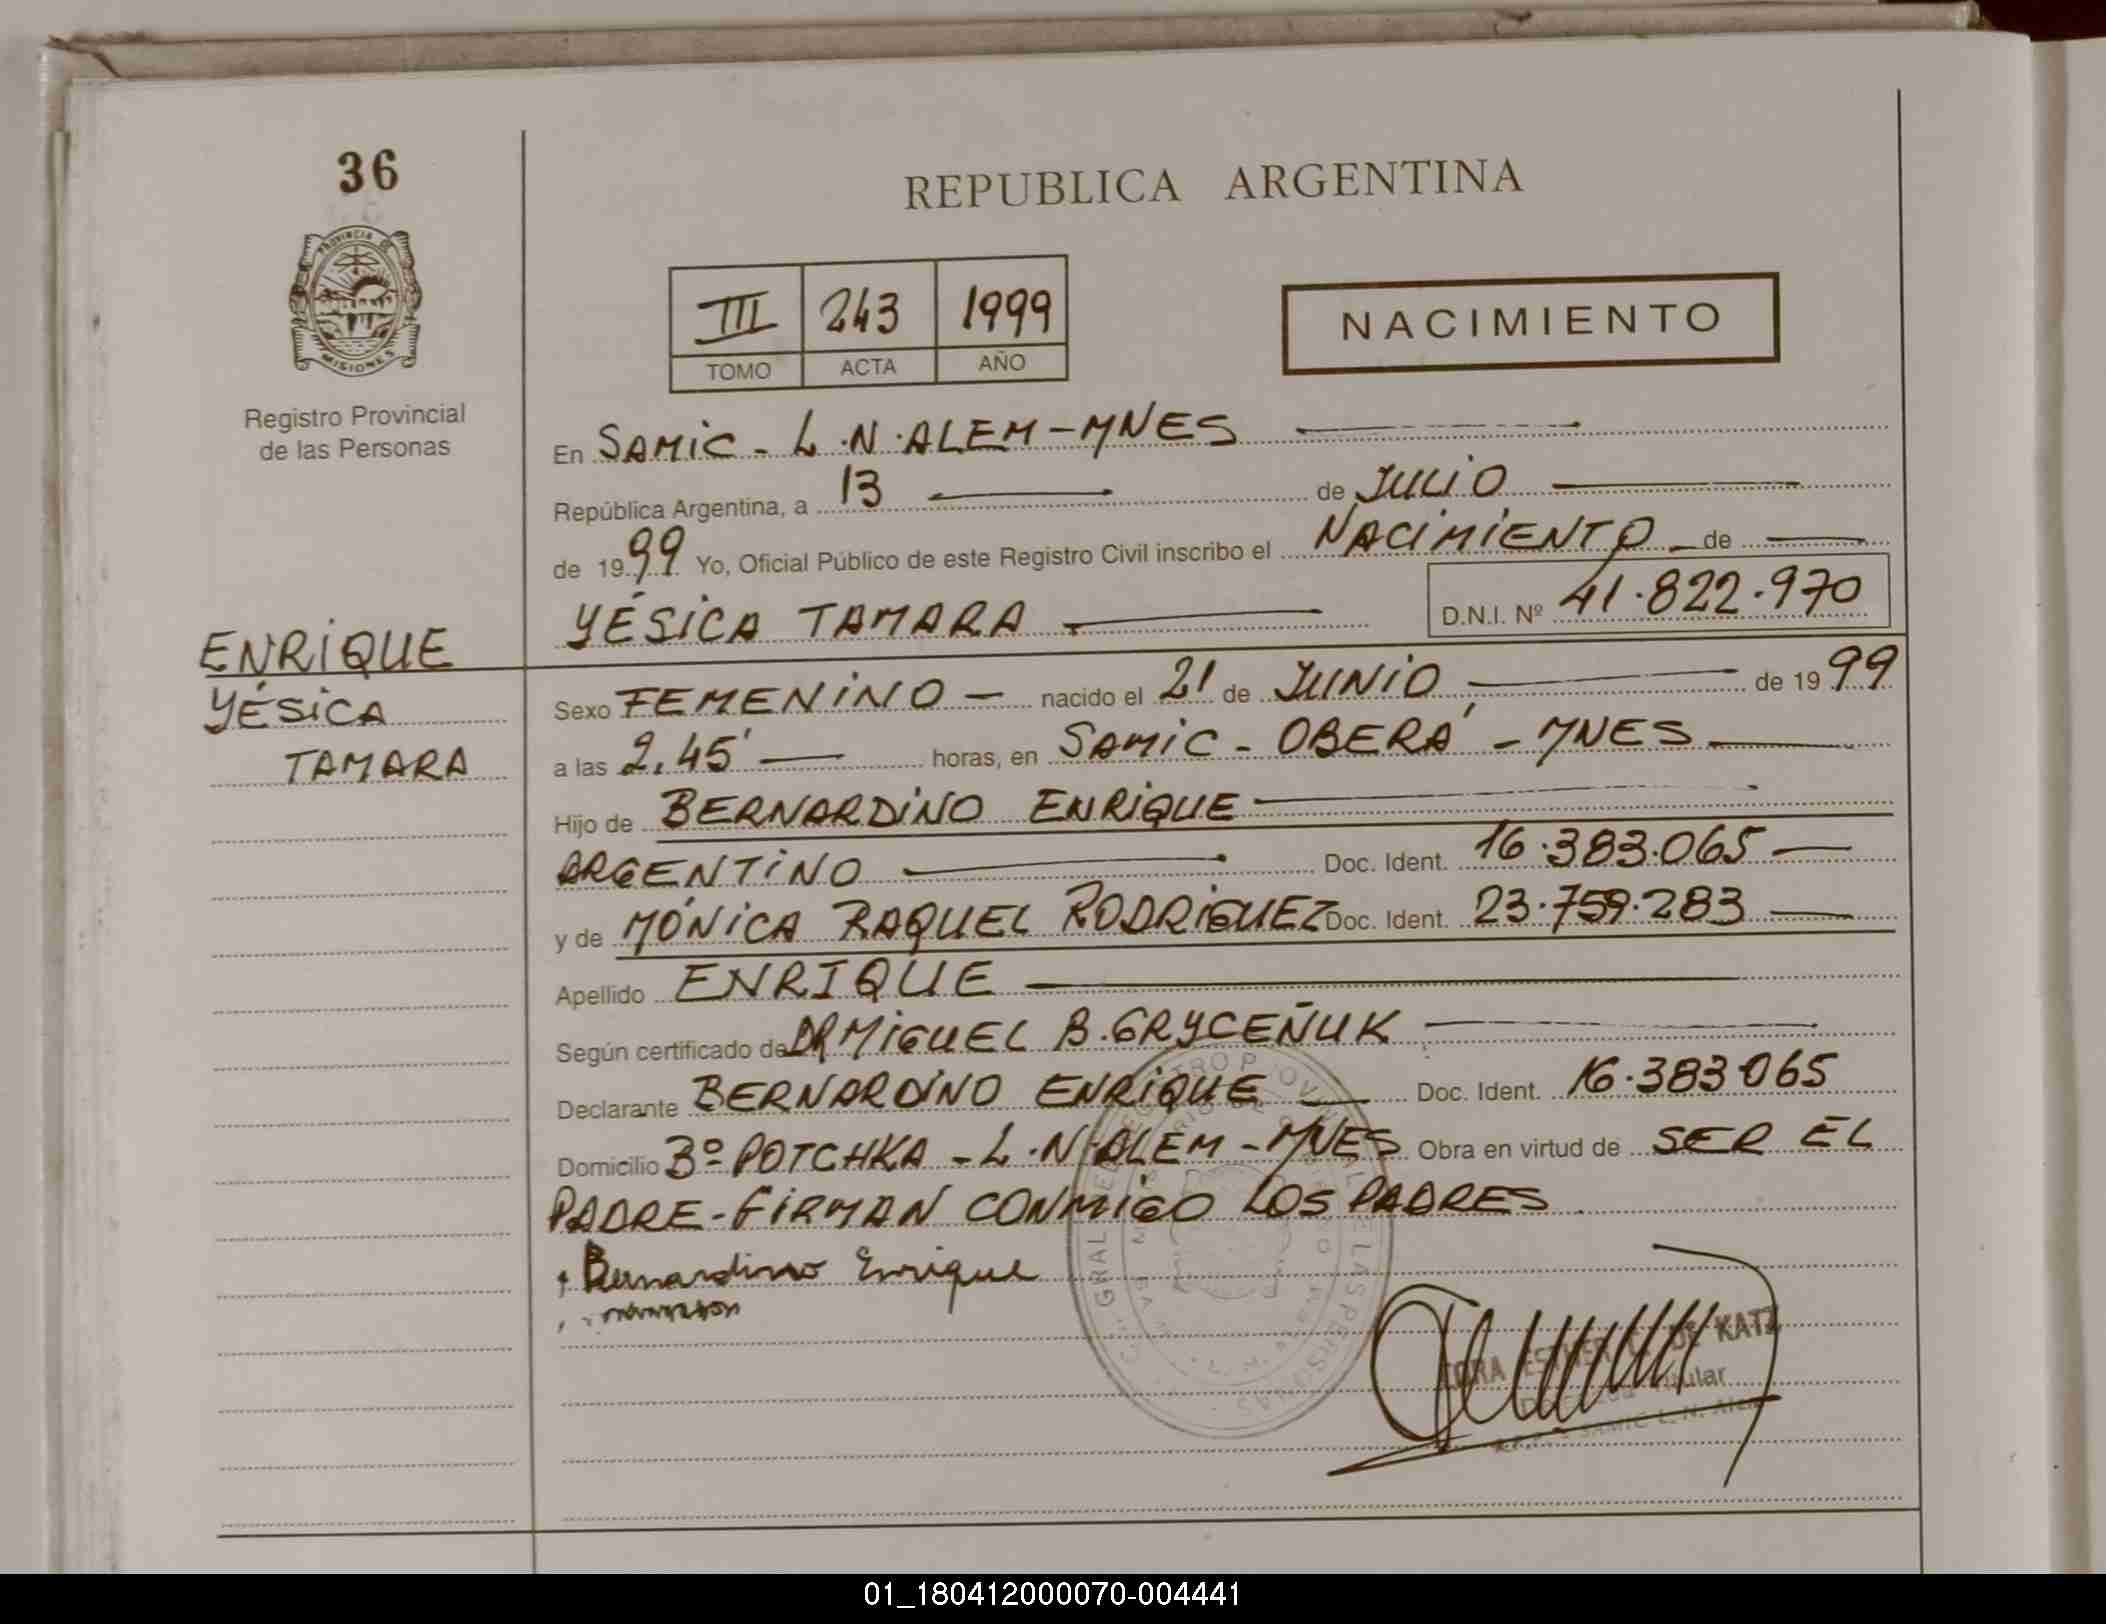 36
REPUBLICA ARGENTINA
PROVINCIA DE
MISIONES
Registro Provincial
de las Personas
III 243 1999
TOMO ACTA AÑO
NACIMIENTO
En SAMIC - L.N.ALEM-MNES
República Argentina, a 13 de JULIO
de 1999 Yo, Oficial Público de este Registro Civil inscribo el NACIMIENTO de
YÉSICA TAMARA D.N.I. Nº 41.822.970
ENRIQUE
YÉSICA
TAMARA
Sexo FEMENINO nacido el 21 de JUNIO de 1999
a las 2,45' horas, en SAMIC - OBERÁ - MNES
Hijo de BERNARDINO ENRIQUE
ARGENTINO Doc. Ident. 16.383.065
y de MÓNICA RAQUEL RODRIGUEZ Doc. Ident. 23.759.283
Apellido ENRIQUE
Según certificado de DR MIGUEL B. GRYCEÑUK
Declarante BERNARDINO ENRIQUE Doc. Ident. 16.383.065
Domicilio Bº POTCHKA - L.N.ALEM - MNES Obra en virtud de SER EL
PADRE - FIRMAN CONMIGO LOS PADRES.
Bernardino Enrique
DE KATZ
Titular
SAMIC L. N. Alem
01_180412000070-004441